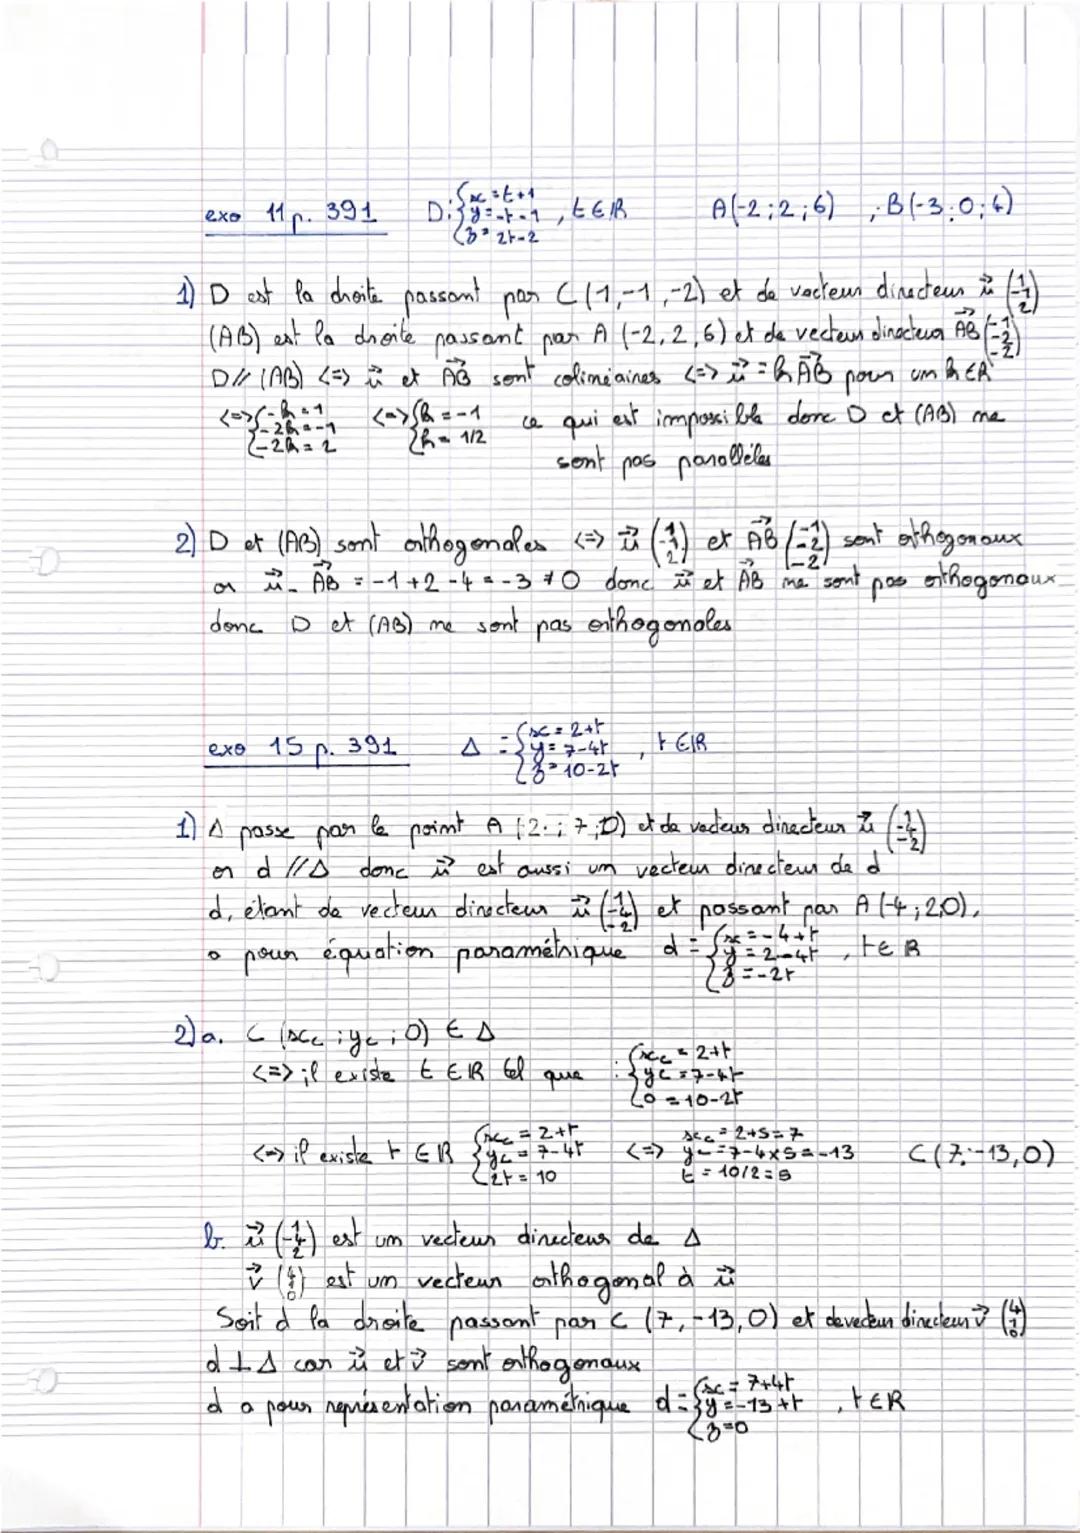 exo 11 p. 391 D: { x = t+1 ; y = -t-1 ; z = 2t-2 , t ∈ ℝ A(-2;2;6) , B(-3;0;4)
1) D est la droite passant par C(1,-1,-2) et de vecteur directeur u⃗ (1 -1 2)
(AB) est la droite passant par A (-2,2,6) et de vecteur directeur AB⃗ (-1 -2 -2)
D // (AB) <=> u⃗ et AB⃗ sont colinéaires <=> u⃗ = kAB⃗ pour un k ∈ ℝ
<=> { -k = 1 ; -2k = -1 ; -2k = 2 <=> { k = -1 ; k = 1/2 ce qui est impossible donc D et (AB) ne
sont pas parallèles
2) D et (AB) sont orthogonales <=> u⃗ (1 -1 2) et AB⃗ (-1 -2 -2) sont orthogonaux
or u⃗. AB⃗ = -1 +2 -4 = -3 ≠ 0 donc u⃗ et AB⃗ ne sont pas orthogonaux
donc D et (AB) ne sont pas orthogonales
exo 15 p. 391 Δ = { x = 2+t ; y = 7-4t ; z = 10-2t , t ∈ ℝ
1) Δ passe par le point A (2 ; 7 ;0) et de vecteur directeur u⃗ (1 -4 -2)
or d // Δ donc u⃗ est aussi un vecteur directeur de d
d, étant de vecteur directeur u⃗ (1 -4 -2) et passant par A(-4;2,0),
a pour équation paramétrique d = { x = -4+t ; y = 2-4t ; z = -2t , t ∈ ℝ
2) a. C (xc ; yc ; 0) ∈ Δ
<=> il existe t ∈ ℝ tel que : { xc = 2+t ; yc = 7-4t ; 0 = 10-2t
<=> il existe t ∈ ℝ { xc = 2+t ; yc = 7-4t ; 2t = 10 <=> xc = 2+5 = 7 ; yc = 7-4x5 = -13 ; t = 10/2 = 5 C(7;-13,0)
b. u⃗ (1 -4 2) est un vecteur directeur de Δ
v⃗ (4 1 0) est un vecteur orthogonal à u⃗
Soit d la droite passant par C (7,-13,0) et de vecteur directeur v⃗ (4 1 0)
d ⊥ Δ car u⃗ et v⃗ sont orthogonaux
d a pour représentation paramétrique d = { x = 7+4t ; y = -13+t ; z = 0 , t ∈ ℝ